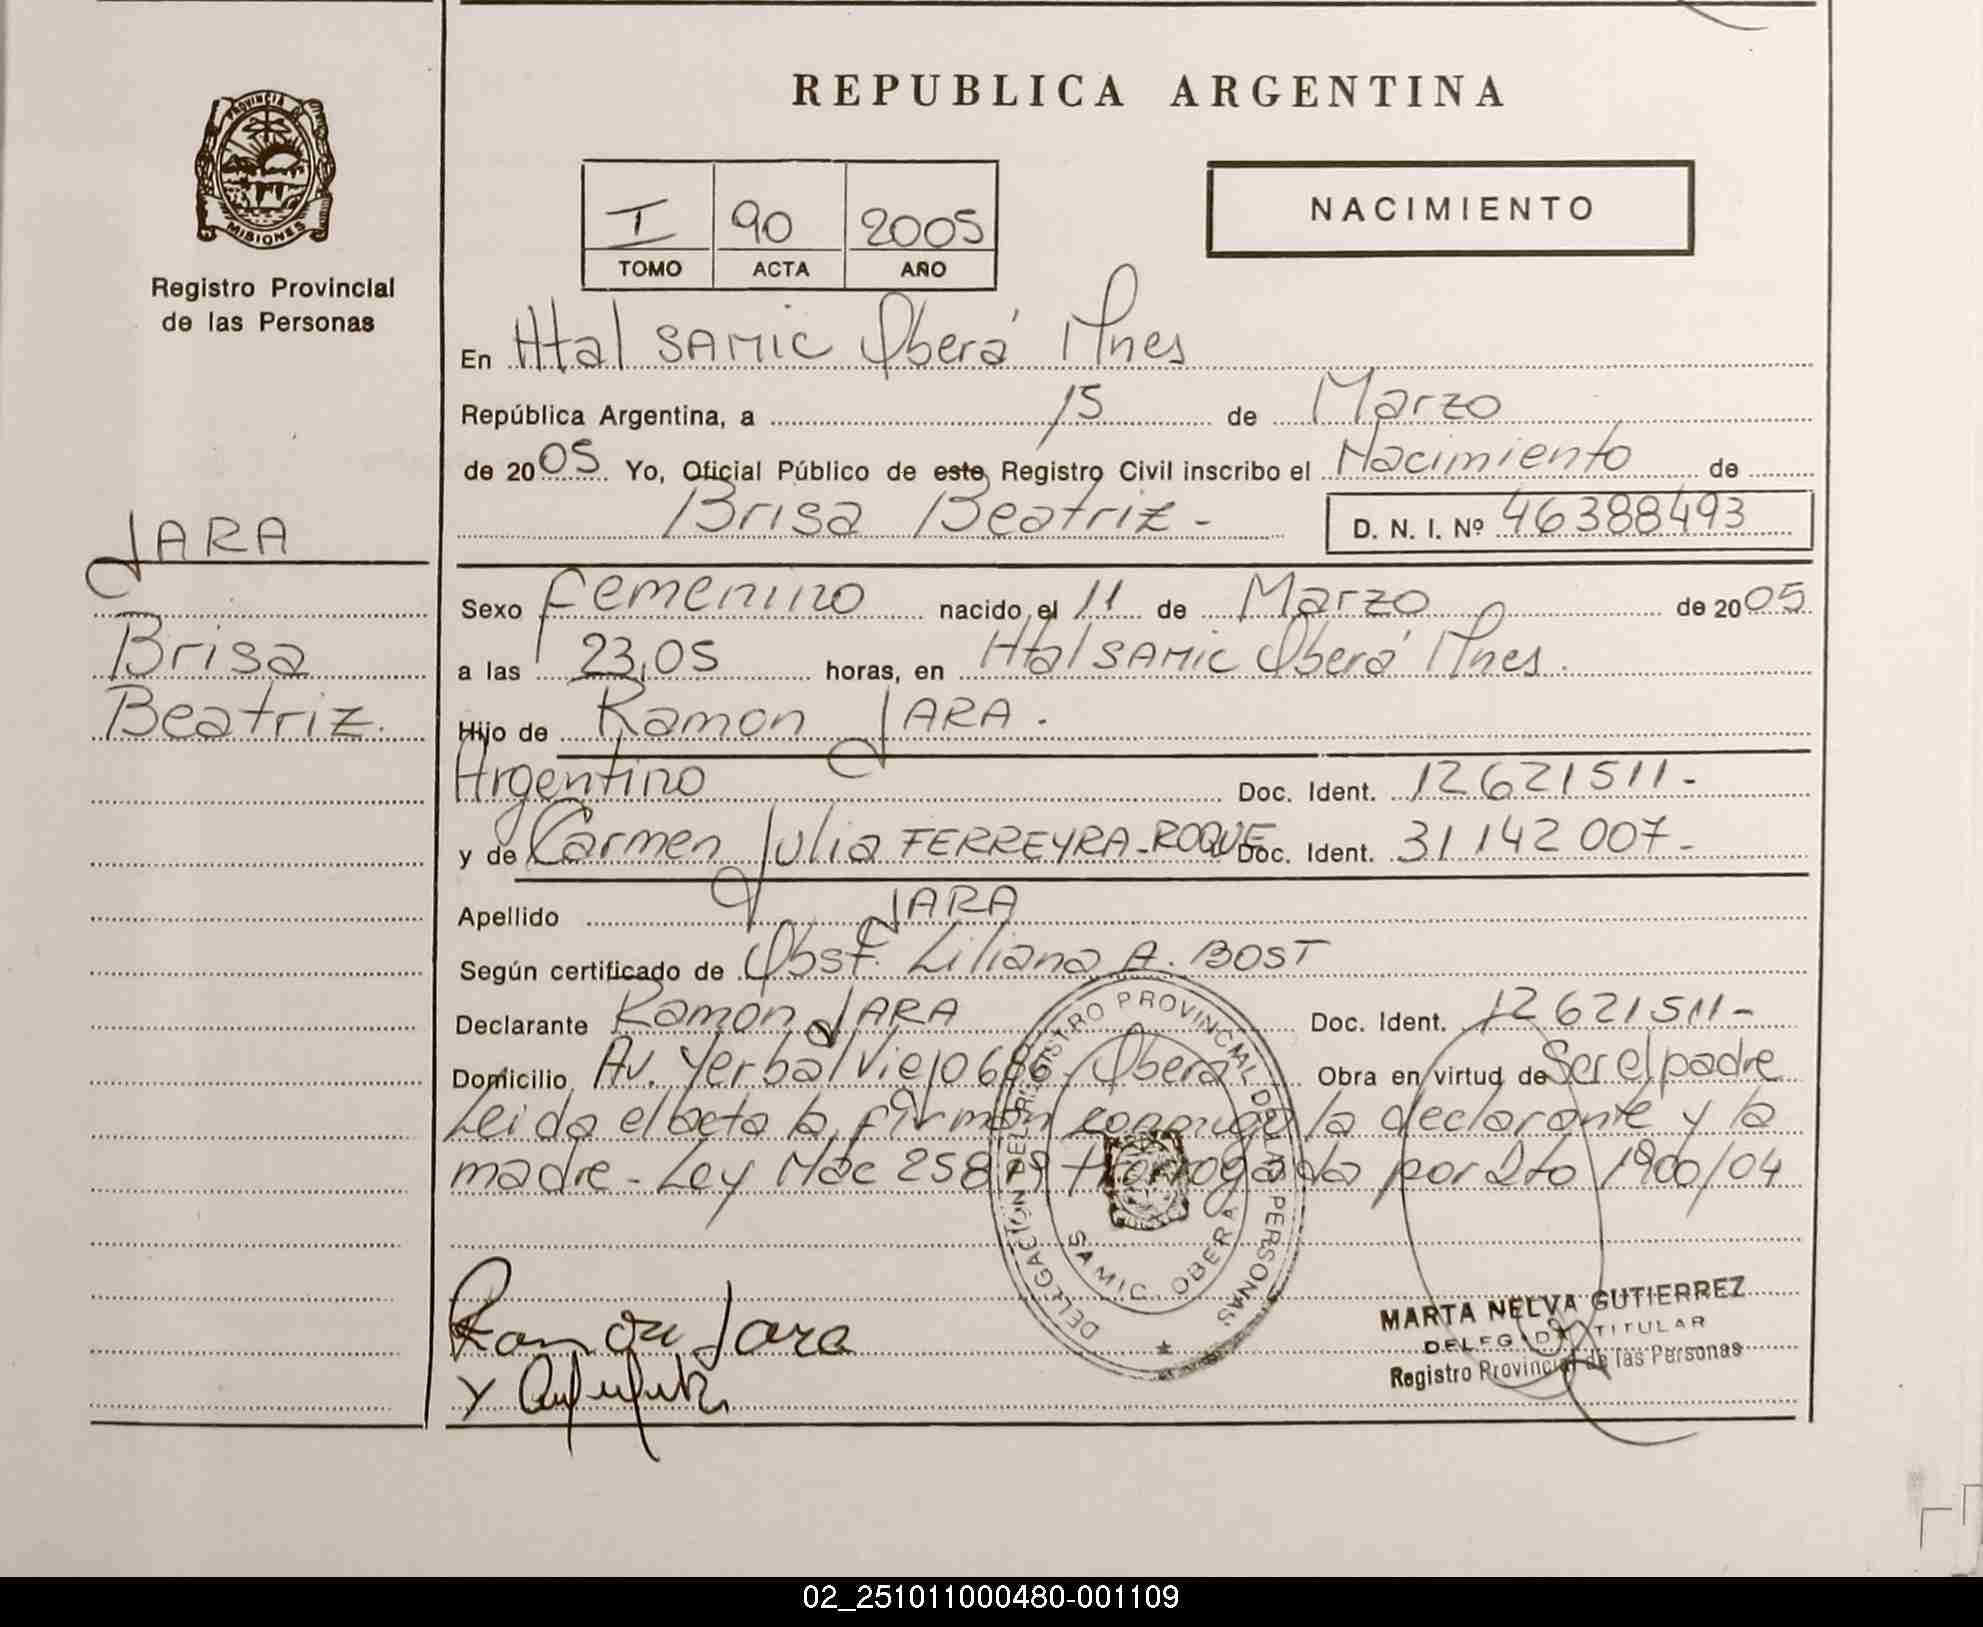 REPUBLICA ARGENTINA
PROVINCIA DE MISIONES
Registro Provincial
de las Personas
I 90 2005
TOMO ACTA AÑO
NACIMIENTO
En Htal SAMIC Oberá Mnes
República Argentina, a 15 de Marzo
de 2005 Yo, Oficial Público de este Registro Civil inscribo el Nacimiento de
Brisa Beatriz - D. N. I. Nº 46388493
JARA
Brisa
Beatriz.
Sexo Femenino nacido el 11 de Marzo de 2005
a las 23,05 horas, en Htal SAMIC Oberá Mnes.
Hijo de Ramon JARA.
Argentino Doc. Ident. 12621511-
y de Carmen Julia FERREYRA-ROQUE Doc. Ident. 31142007-
Apellido JARA
Según certificado de Obst. Liliana A. BOST
Declarante Ramon JARA Doc. Ident. 12621511-
Domicilio Av. Yerbal Viejo 686 Oberá Obra en virtud de Ser el padre
Leida el acta la firman conmigo la declarante y la
madre - Ley Nac 25819 Prorrogada por Dto 1900/04
DELEGACIÓN DEL REGISTRO PROVINCIAL DE LAS PERSONAS
SAMIC OBERA
Ramon Jara
y
MARTA NELVA GUTIERREZ
DELEGADA TITULAR
Registro Provincial de las Personas
02_251011000480-001109